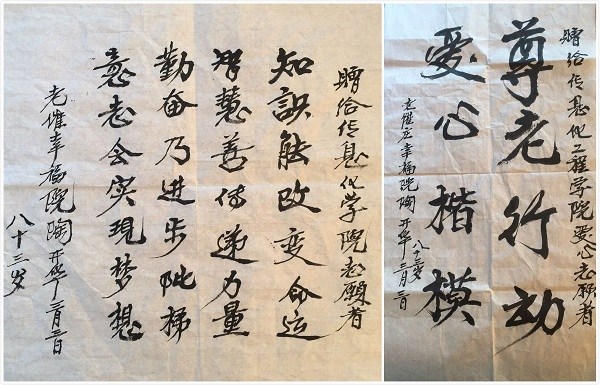 贈给信息化学院志願者
知識能改变命运
智慧善传递力量
勤奋乃进步阶梯
意志会实現梦想
老崔幸福院陶开华三月三日
八十三岁
贈给信息化工程学院爱心志願者
尊老行动
爱心楷模
老崔庄幸福院陶开华
八十三岁
三月三日